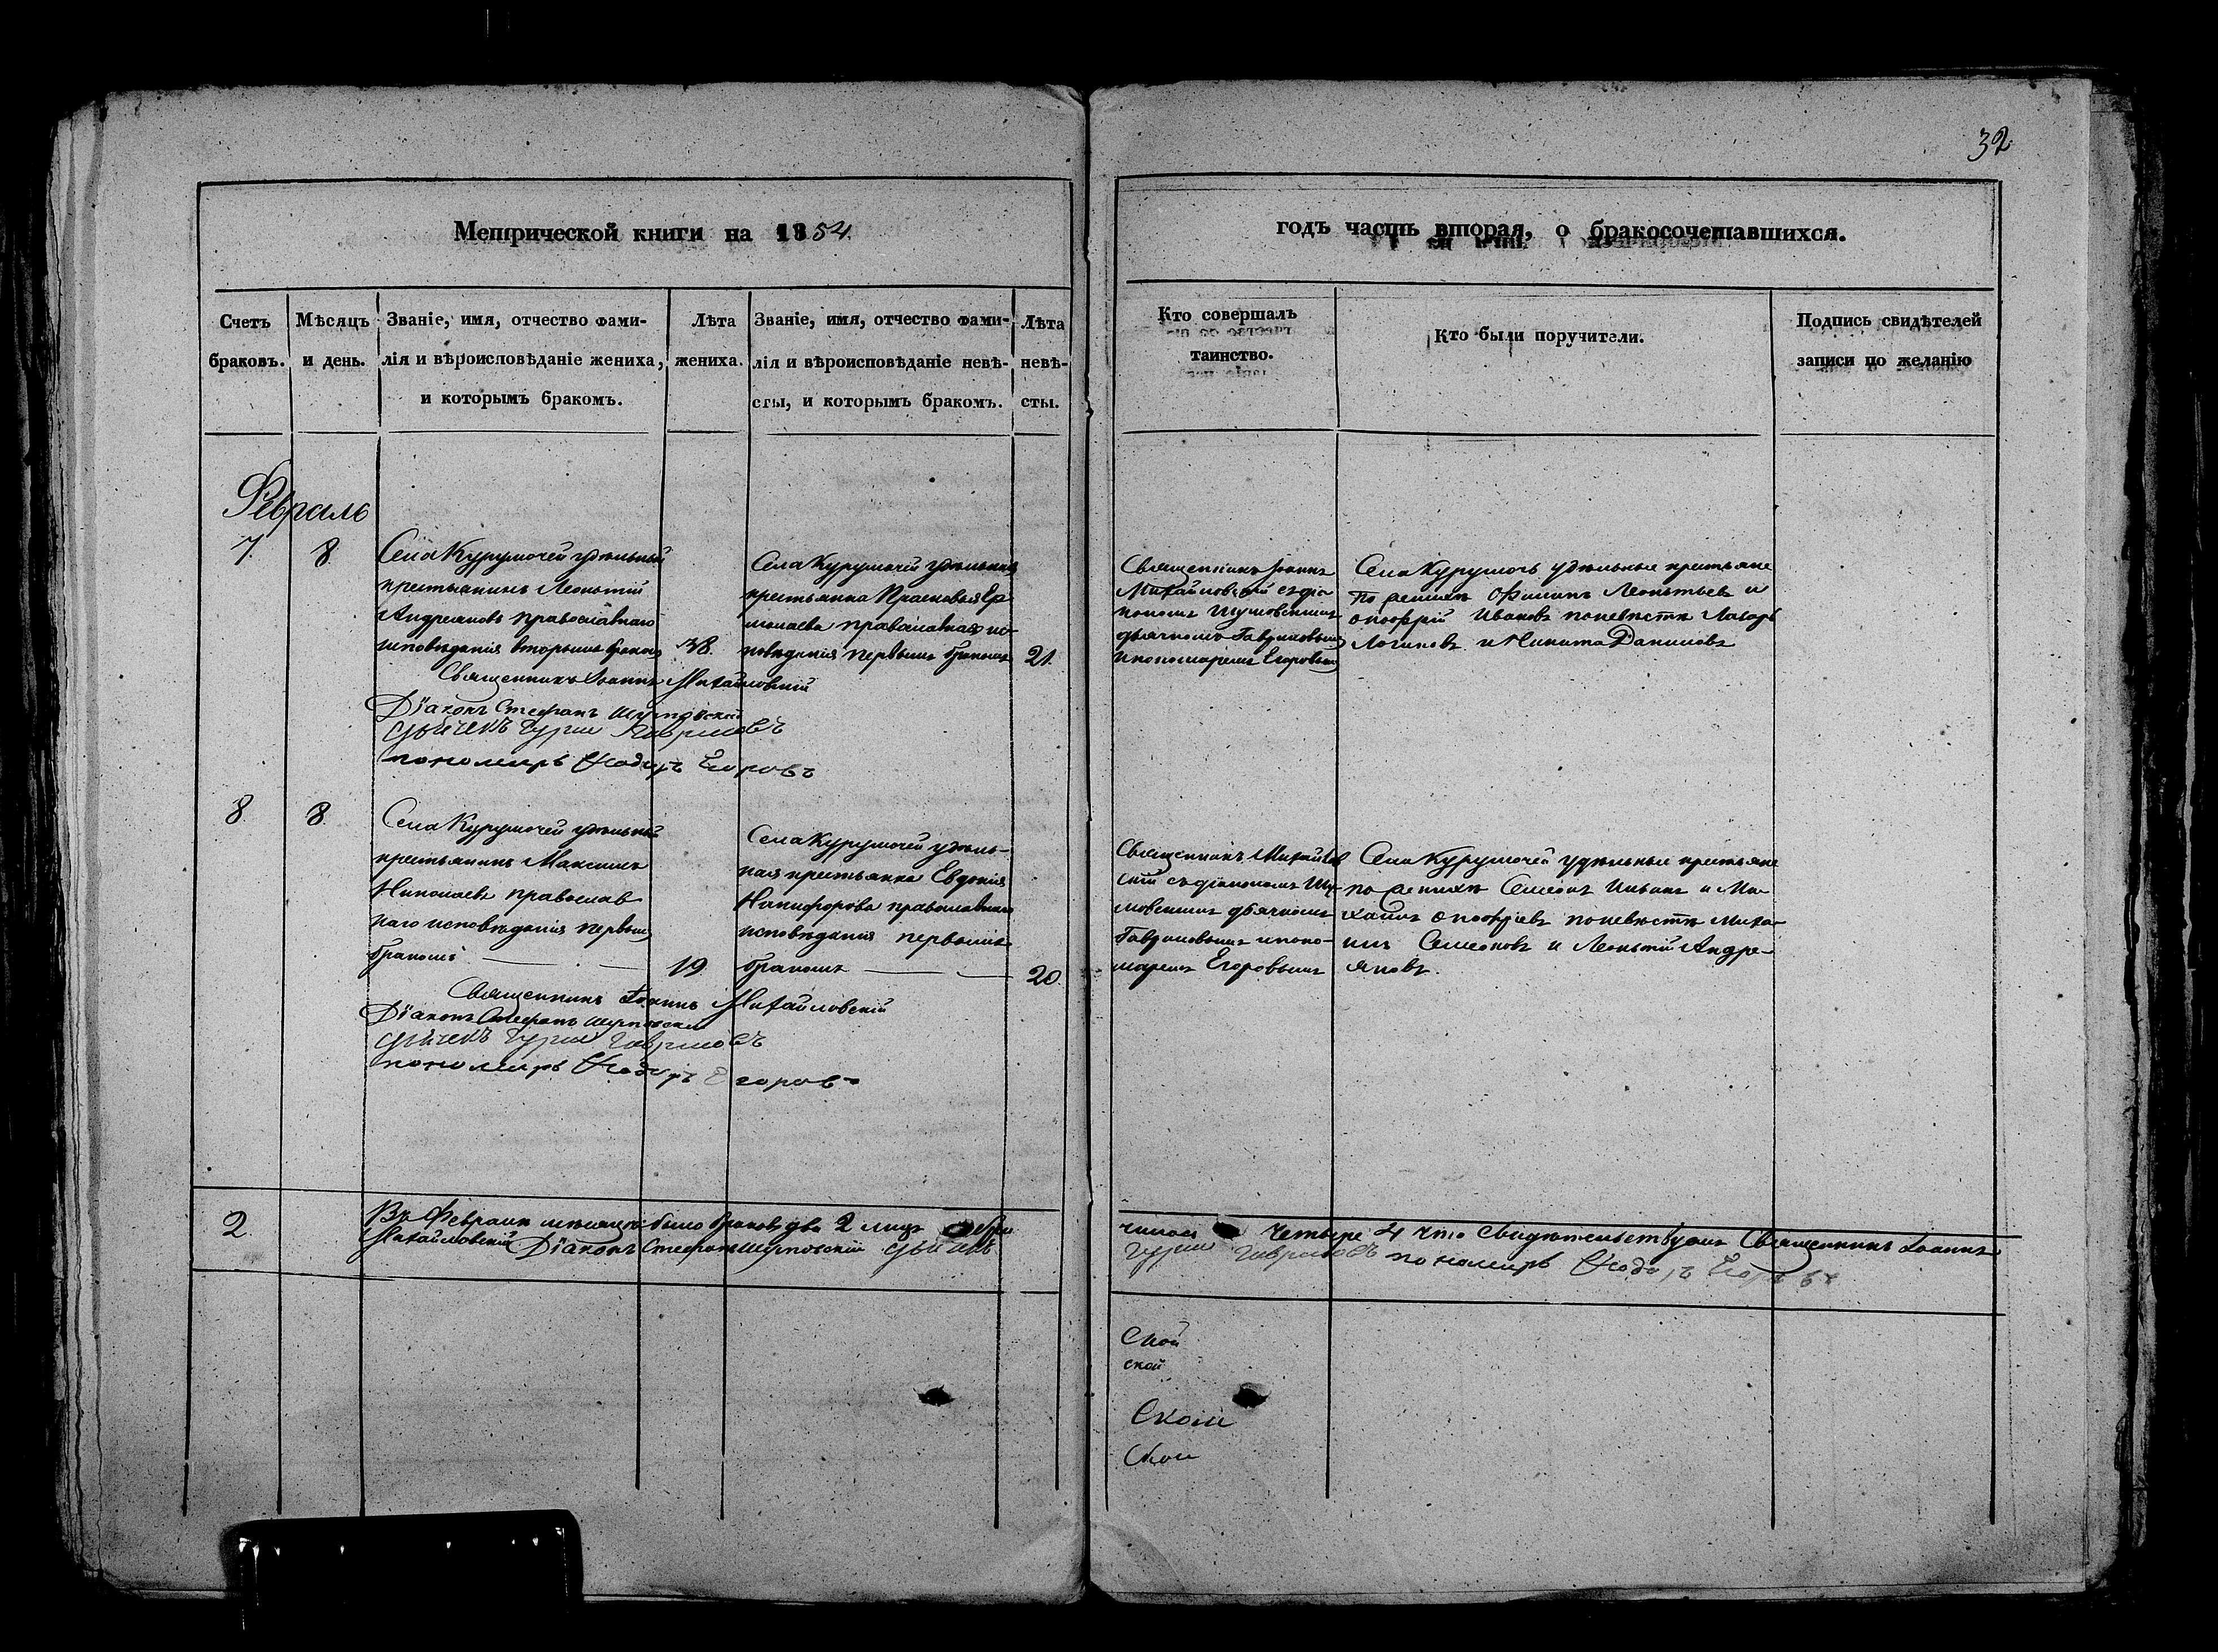 32
Метрической книги на 1854.
годъ часть вторая, о бракосочетавшихся.
Счетъ
браковъ.
Мѣсяцъ
и день.
Званіе, имя, отчество фами-
лія и вѣроисповѣданіе жениха,
и которымъ бракомъ.
Лѣта
жениха.
Званіе, имя, отчество фами-
лія и вѣроисповѣданіе невѣ-
сты, и которымъ бракомъ.
Лѣта
невѣ-
сты.
Кто совершалъ
таинство.
Кто были поручители.
Подпись свидѣтелей
записи по желанію
Февраль
7.
8
Села Курумочей удѣльный
крестьянинъ Леонтій
Андреяновъ православнаго
исповѣданія вторымъ бракомъ
38.
Села Курумочей удѣльная
крестьянка Прасковья Ер
молаева православнаго ис-
повѣданія первымъ бракомъ
21.
Священникъ Іоаннъ
Михайловскій съ діа
кономъ Шумовскимъ
дьячкомъ Гавриловымъ
и пономаремъ Егоровымъ
Села Курумочь удѣльные крестьяне
по женихѣ Филипъ Леонтьевъ и
Онофрій Ивановъ по невѣстѣ Лазарь
Логиновъ и Никита Даниловъ
Священникъ Іоаннъ Михайловскій
Діаконъ Стефанъ Шумовскій
Дьячекъ Гурій Гавриловъ
пономарь Егоровъ
8.
8.
Села Курумочей удѣльный
крестьянинъ Максимъ
Николаевъ православ
наго исповѣданія первымъ
бракомъ
19.
Села Курумочей удѣль-
ная крестьянка Евдокія
Никифорова православнаго
исповѣданія первымъ
бракомъ
20.
Священникъ Михайлов
скій съ діакономъ Шу-
мовскимъ дьячкомъ
Гавриловымъ и поно-
маремъ Егоровымъ
Села Курумочей удѣльные крестьяне
по женихѣ Симеонъ и Ми-
хаилъ Онофріевъ по невѣстѣ Михаи-
илъ Симеоновъ и Леонтій Андре-
яновъ.
Священникъ Іоаннъ Михайловскій
Діаконъ Стефанъ Шумовскій
Дьячекъ Гурій Гавриловъ
пономарь Егоровъ
2.
Въ Февралѣ мѣсяцѣ было браковъ два 2 лицъ
четыре 4 что свидѣтельствуемъ Священникъ Іоаннъ
Михайловскій Діаконъ Стефанъ Шумовскій Дьячекъ
Гурій Гавриловъ пономарь Егоровъ
Ской
ской
Ском
Скои